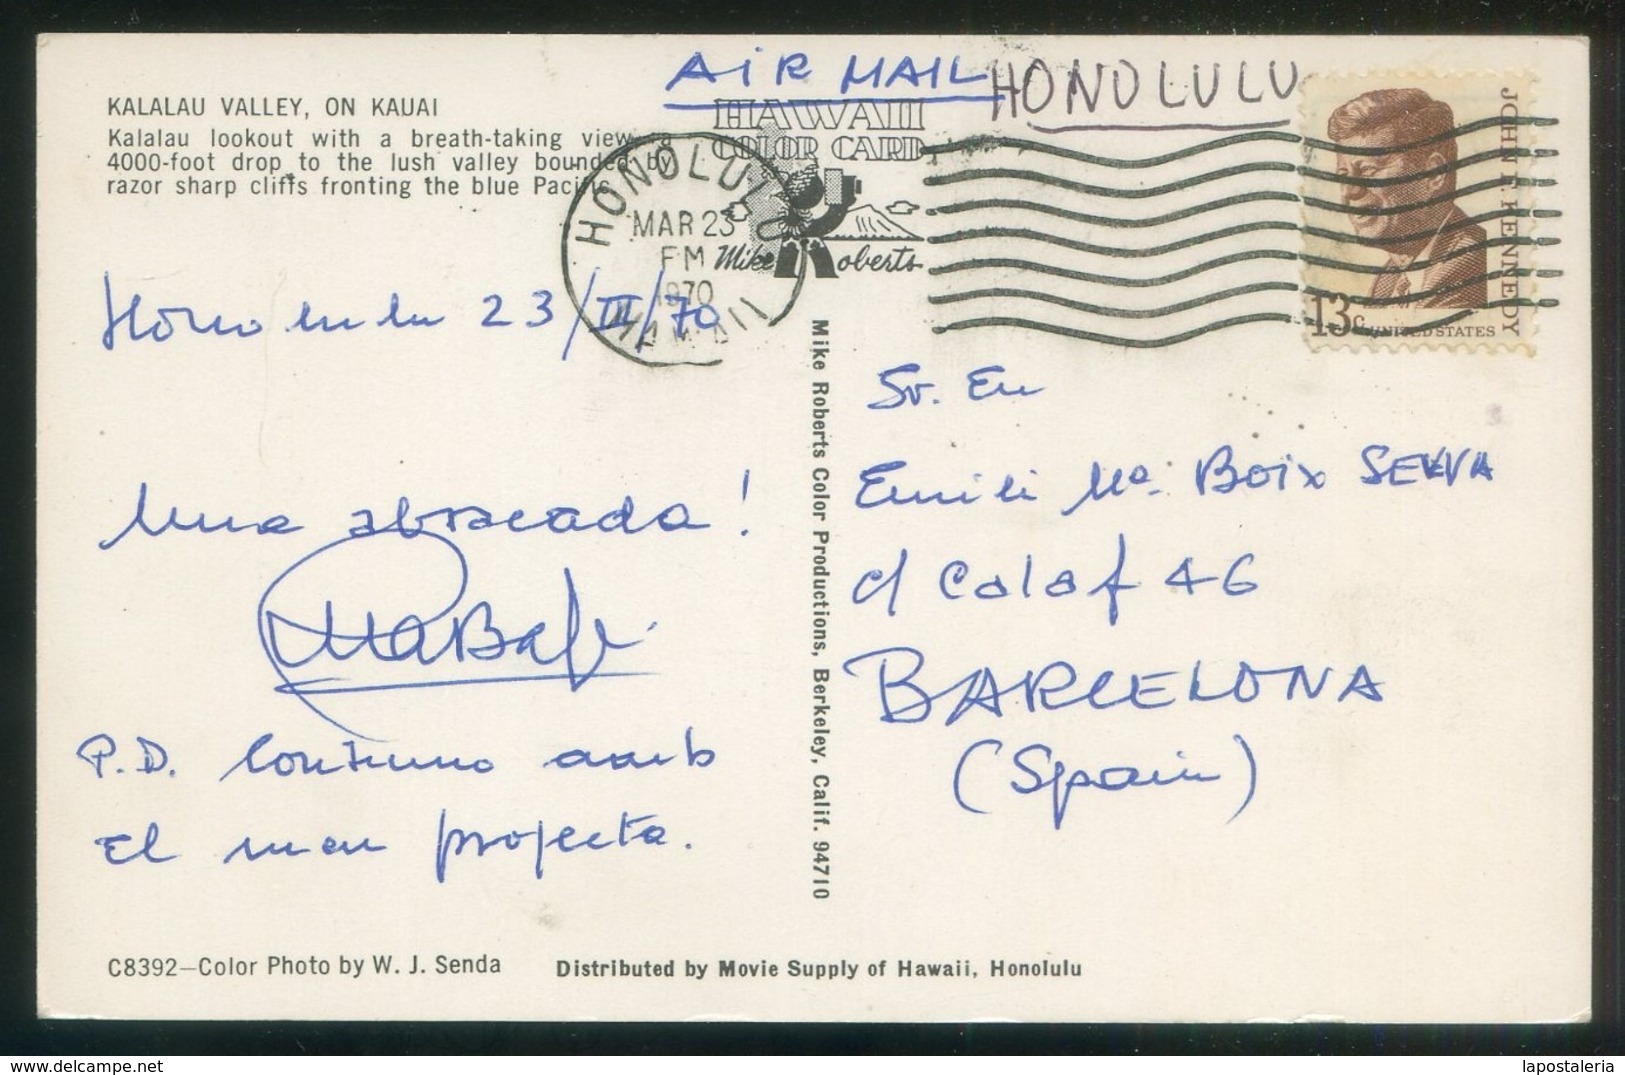 AIR MAIL HONOLULU
KALALAU VALLEY, ON KAUAI
Kalalau lookout with a breath-taking view a
4000-foot drop to the lush valley bounded by
razor sharp cliffs fronting the blue Pacific.
HAWAII
COLOR CARD
Mike Roberts
HONOLULU
MAR 23
PM
1970
HAWAII
JOHN F. KENNEDY
13c UNITED STATES
Honolulu 23/III/70
Una abraçada!
P.D. Continuo amb
el meu projecte.
Mike Roberts Color Productions, Berkeley, Calif. 94710
Sr. En
Emili Mª. Boix SELVA
c/ Calaf 46
BARCELONA
(Spain)
C8392—Color Photo by W. J. Senda
Distributed by Movie Supply of Hawaii, Honolulu
© todocoleccion - delcampe.net
lapostaleria